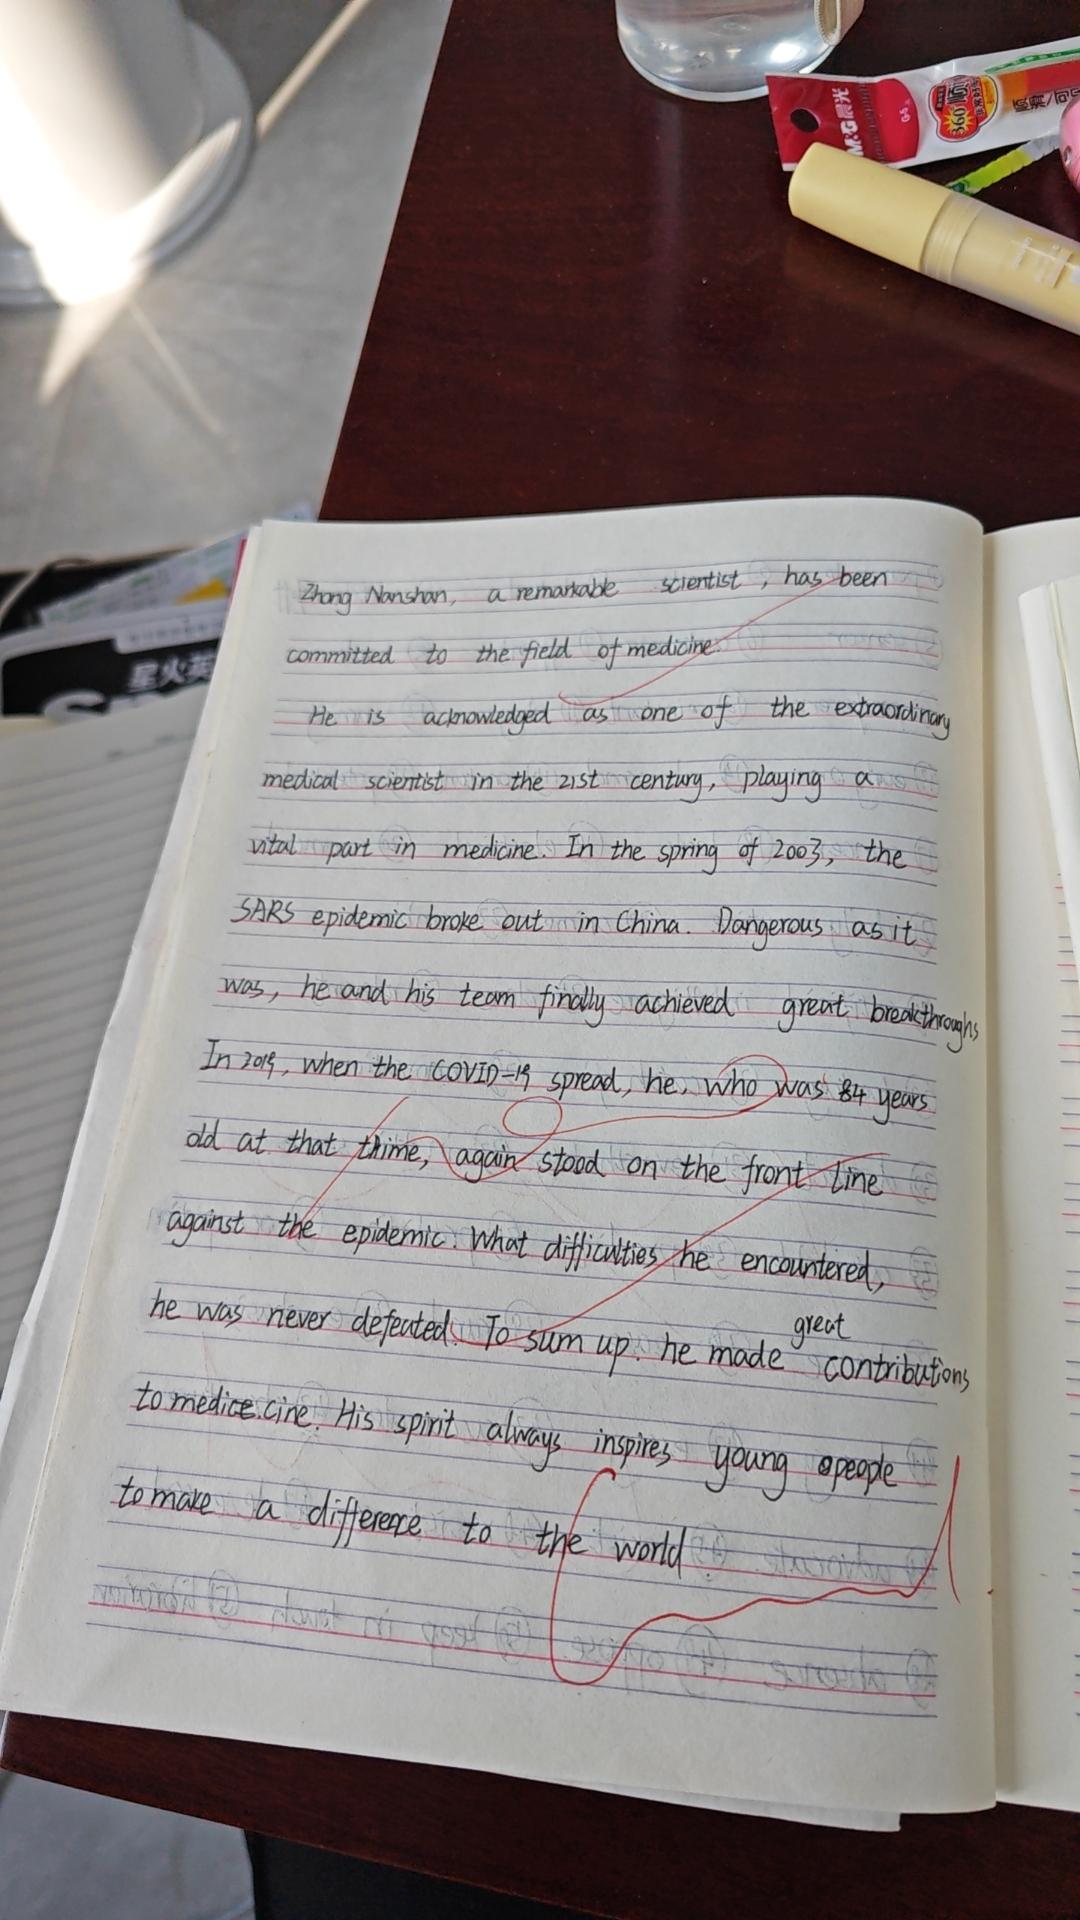 M&G晨光
0.5
360
星火英
S
Zhong Nanshan, a remarkable scientist, has been
committed to the field of medicine.
He is acknowledged as one of the extraordinary
medical scientist in the 21st century, playing a
vital part in medicine. In the spring of 2003, the
SARS epidemic broke out in China. Dangerous as it
was, he and his team finally achieved great breakthroughs
In 2019, when the COVID-19 spread, he, who was 84 years
old at that thime, again stood on the front line
against the epidemic. What difficulties he encountered,
he was never defeated. To sum up. he made great contributions
to medice.cine. His spirit always inspires young people
to make a difference to the world